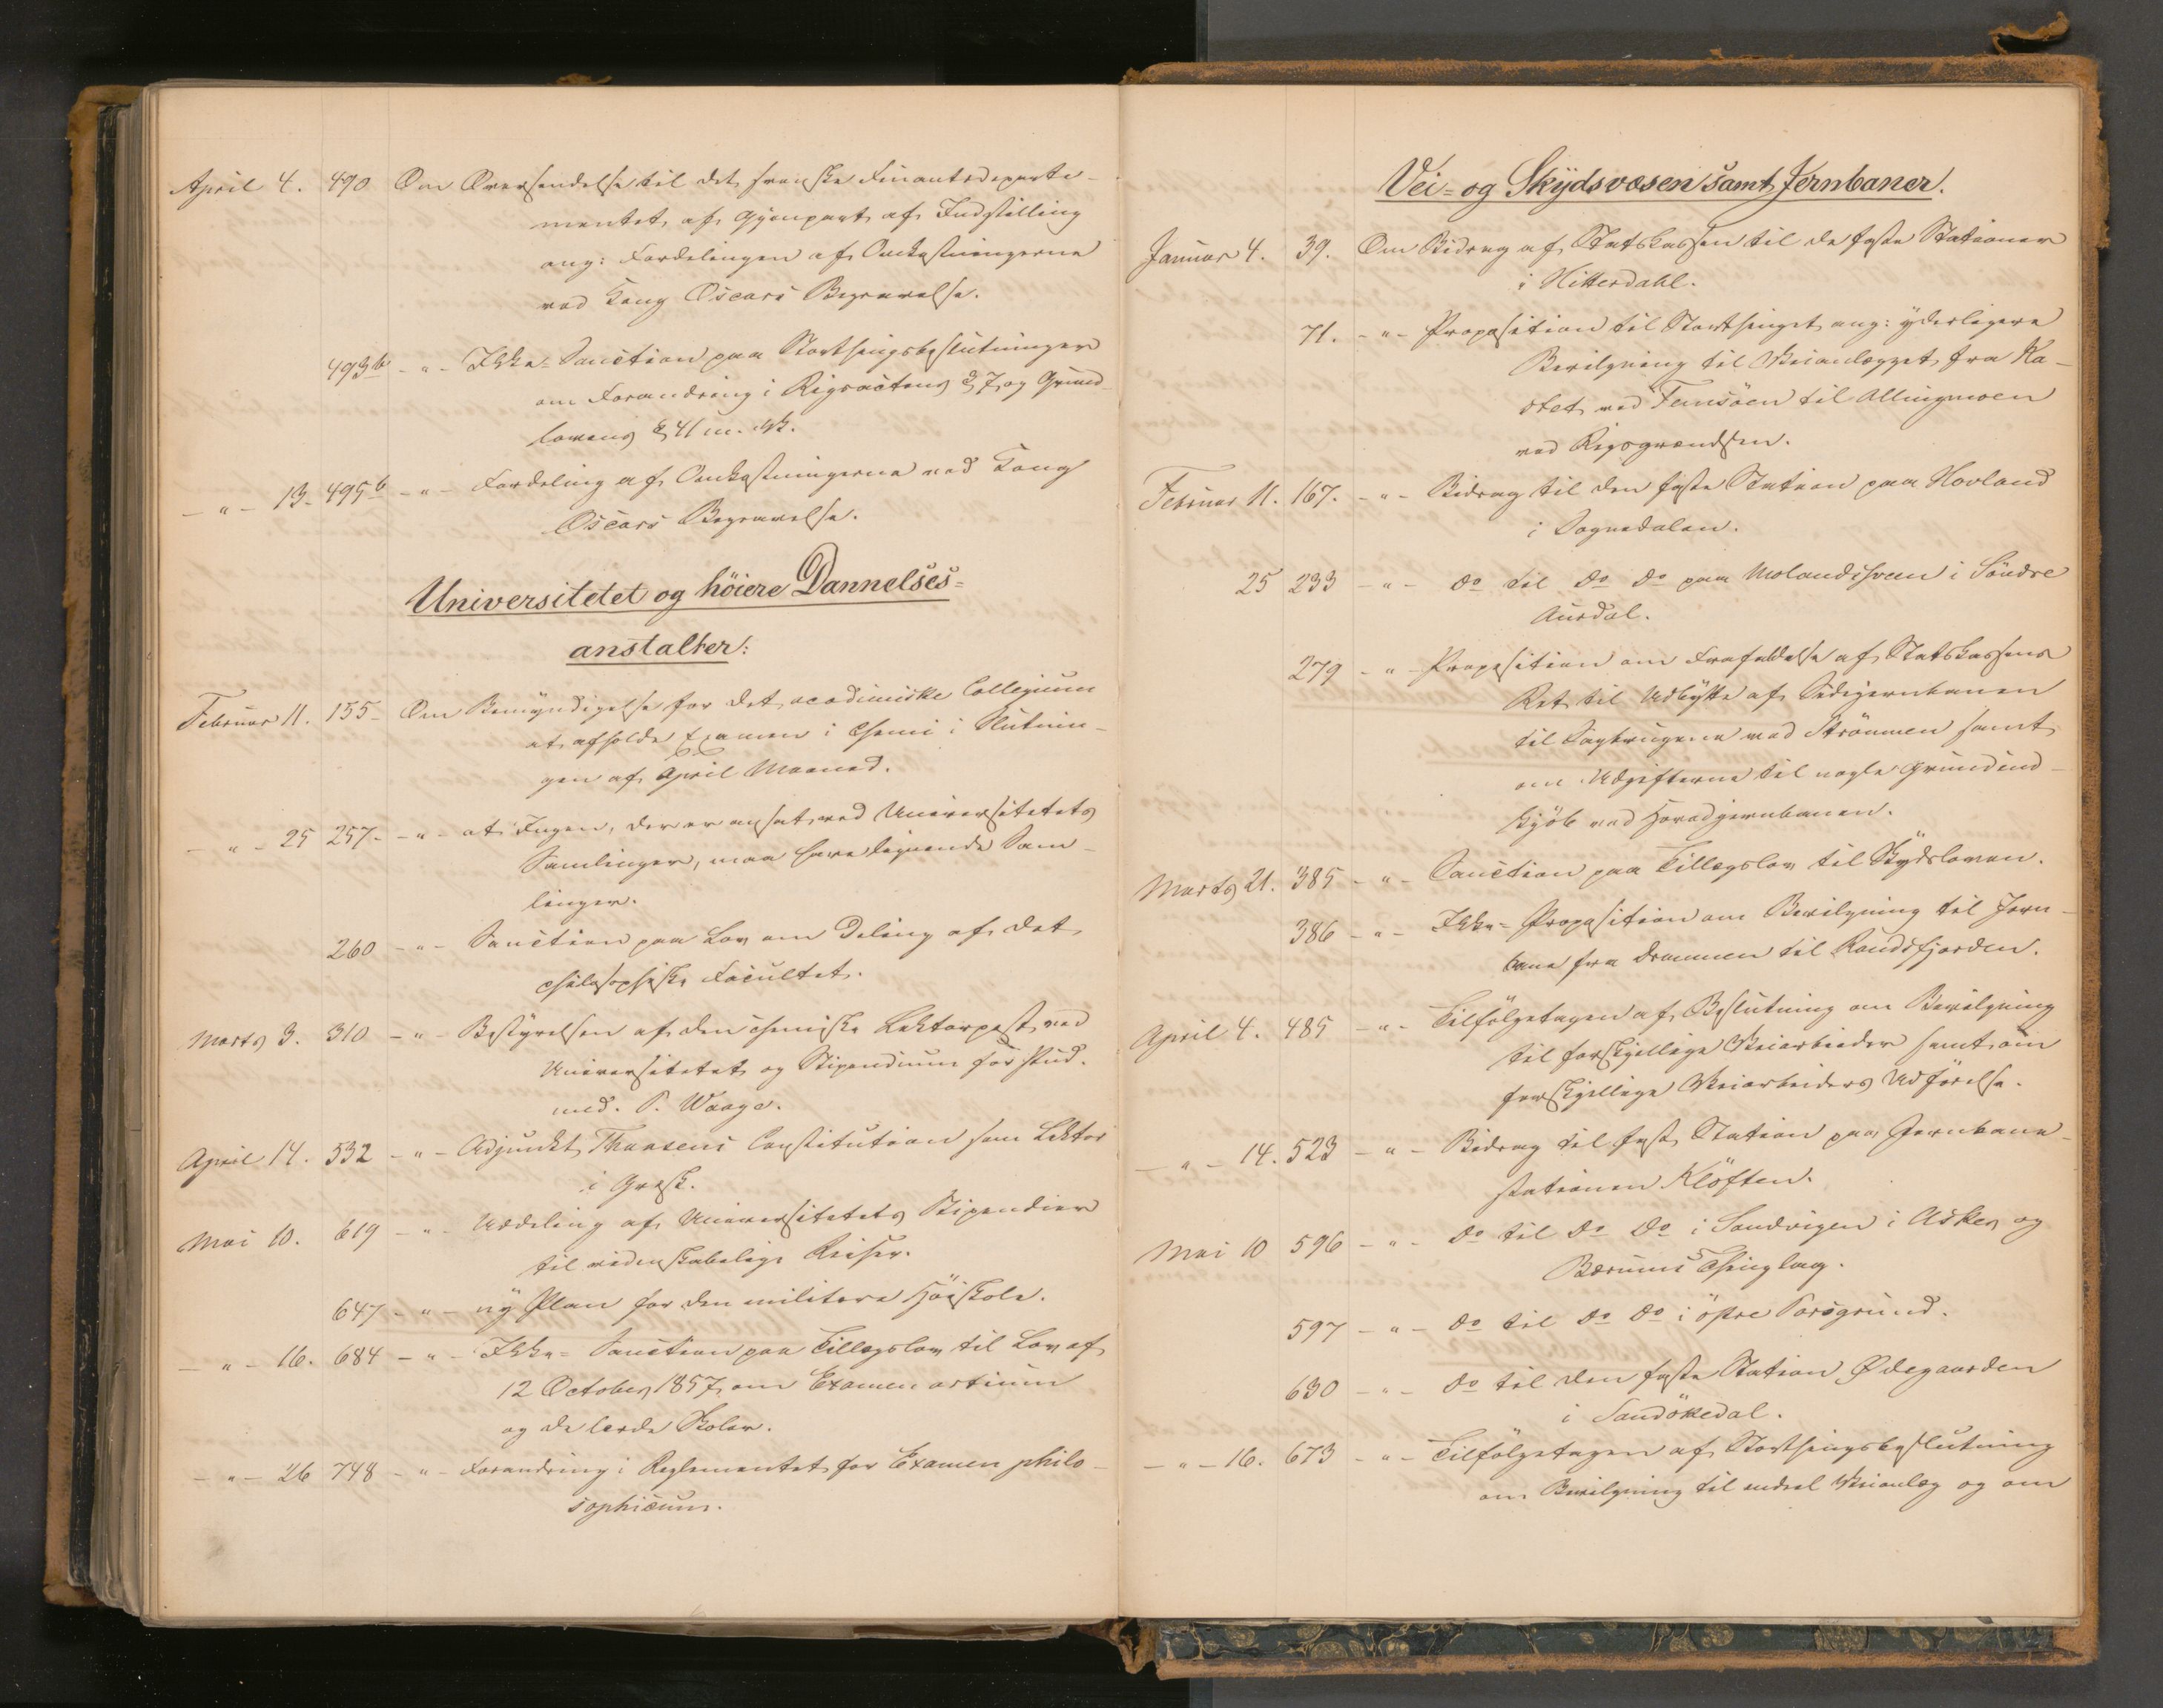 April 4. 490 Om Oversendelse til det svenske Finantsdeparte-
mentet af Gjenpart af Indstilling
ang: Fordelingen af Omkostningerne
ved Kong Oscars Begravelse.
493b - " - Ikke-Sanction paa Storthingsbeslutninger
om Forandring i Rigsactens § 7 og Grund-
lovens § 41 m. Mk.
- " - 13. 495b - " - Fordeling af Omkostningerne ved Kong
Oscars Begravelse.
Universitetet og höiere Dannelses=
anstalter:
Februar 11. 155 - Om Bemyndigelse for det academiske Collegium
at afholde Examen i Chemi i Slutnin-
gen af April Maaned.
- " - 25 257 - " - at Ingen, der er ansat ved Universitetets
Samlinger, maa have lignende Sam-
linger.
260 - " - Sanction paa Lov om Deling af det
philosophiske Facultet.
Marts 3. 310 - " - Bestyrelsen af den chemiske Lektorpost ved
Universitetet og Stipendium for stud.
med. P. Waage.
April 14. 532 - " - Adjunkt Thaasens Constitution som Lektor
i Græsk.
Mai 10. 619 - " - Uddeling af Universitetets Stipendier
til videnskabelige Reiser.
647 - " - ny Plan for den militære Höiskole.
- " - 16. 684 - " - Ikke= Sanction paa Tillægslov til Lov af
12 October 1857 om Examen artium
og de lærde Skoler.
- " - 26 748 - " - Forandring i Reglementet for Examen philo-
sophicum.
Vei= og Skydsvæsen samt Jernbaner.
Januar 4. 39. Om Bidrag af Statskassen til de faste Stationer
i Hitterdahl.
71. - " - Proposition til Storthinget ang: yderligere
Bevilgning til Veianlægget fra Ka-
stet ved Femsöen til Allingmoen
ved Rigsgrændsen.
Februar 11. 167. - " - Bidrag til den faste Station paa Hovland
i Sognedalen.
25 233 - " - do til do do paa Molandsveen i Söndre
Aurdal.
279 - " - Proposition om Frafaldelse af Statskassens
Ret til Udbytte af Sidejernbanen
til Sagbrugene ved Strömmen samt
om Udgifterne til nogle Grundind-
kjöb ved Hovedjernbanen.
Marts 21. 385 - " - Sanction paa Tillægslov til Skydsloven.
386 - " - Ikke= Proposition om Bevilgning til Jern-
bane fra Drammen til Randsfjorden.
April 4. 485 - " - Tilfölgetagen af Beslutning om Bevilgning
til forskjellige Veiarbeider samt om
forskjellige Veiarbeiders Udförelse.
- " - 14. 523 - " - Bidrag til fast Station paa Jernbane-
stationen Klöften.
Mai 10 596 - " - do til do do i Sandvigen i Asker og
Bærums Thinglag.
597 - " - do til do do i östre Porsgrund.
630 - " - do til den faste Station Ødegaarden
i Sandökedal.
- " - 16. 673 - " - Tilfölgetagen af Storthingsbeslutning
om Bevilgning til endeel Veianlæg og om